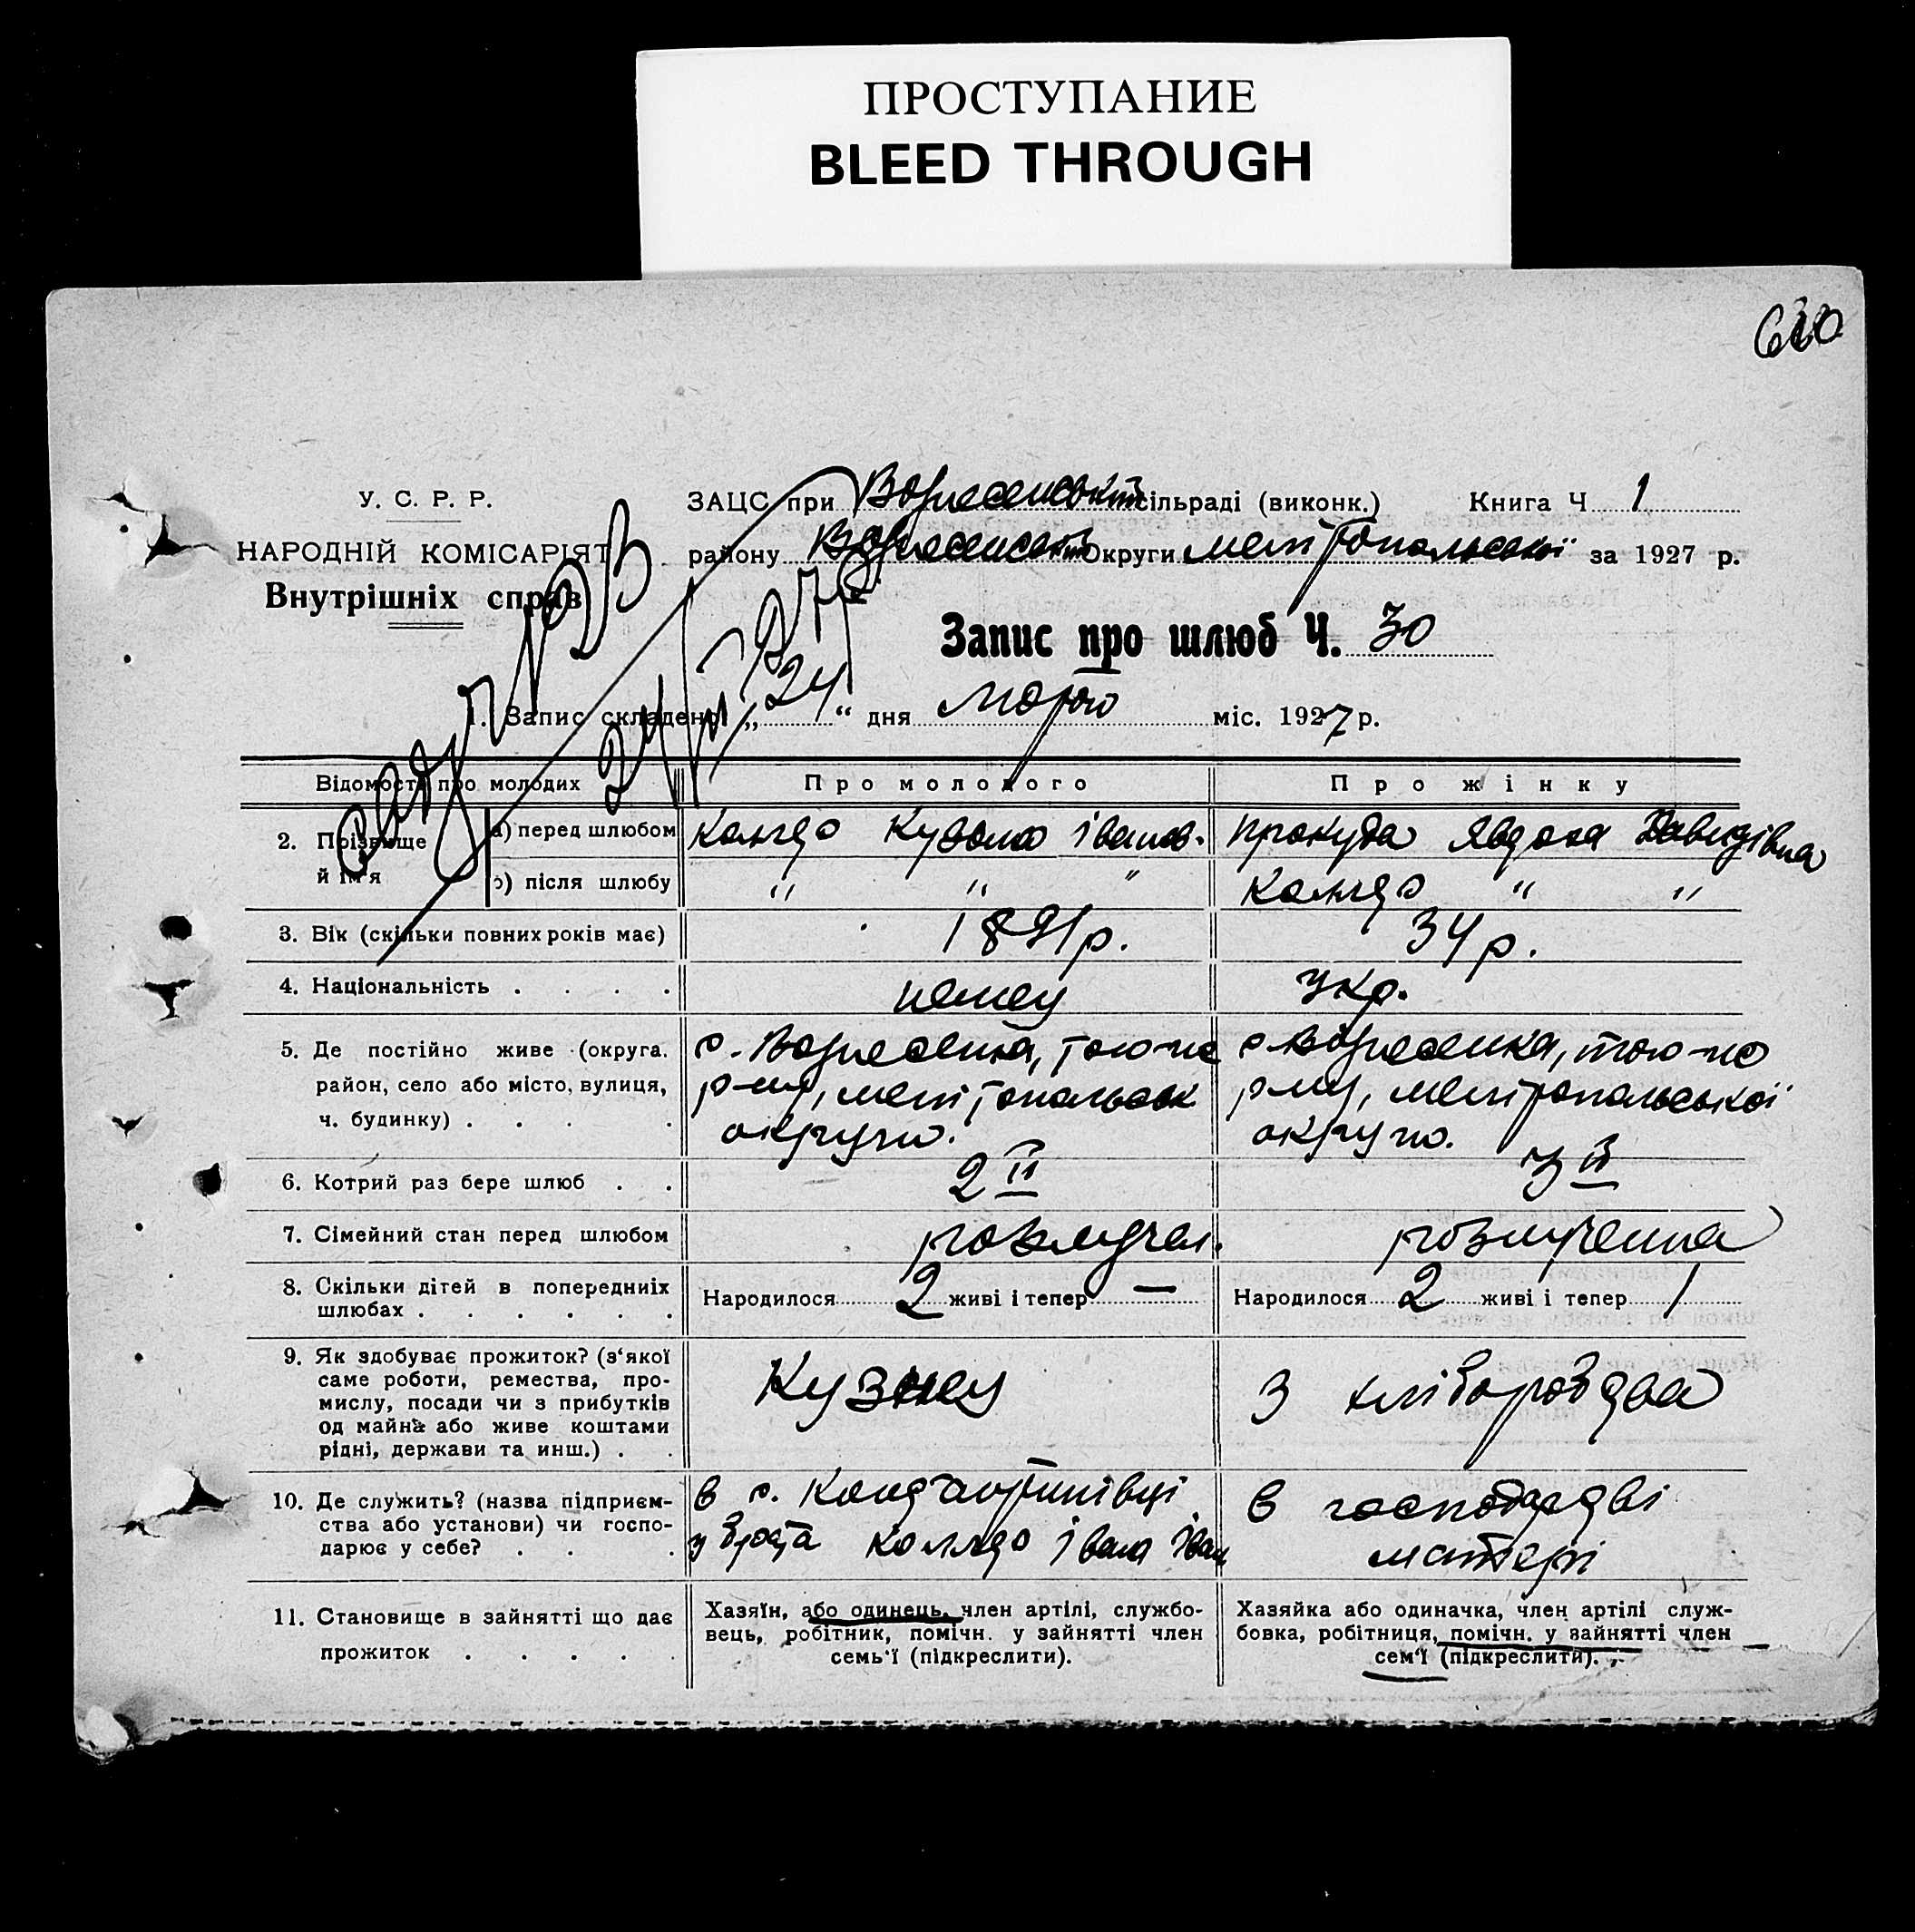 ПРОСТУПАНИЕ
BLEED THROUGH
630
У. С. Р. Р.
НАРОДНІЙ КОМІСАРІЯТ
Внутрішніх справ
ЗАЦС при Вознесенськй сільраді (виконк.) Книга Ч 1
району Вознесенськ Округи мелітопольської за 1927 р.
Запис про шлюб Ч. 30
1. Запис складено „24“ дня марта міс. 1927 р.
Відомості про молодих
Про молодого
Про жінку
2. Прізвище й ім'я
а) перед шлюбом
Кузьма Іванов.
Прокуда Явдоха Давидівна
б) після шлюбу
" " "
" "
3. Вік (скільки повних років має)
1891 р.
34 р.
4. Національність . . . .
немец
Укр.
5. Де постійно живе (округа,
район, село або місто, вулиця,
ч. будинку) . . . .
с. Вознесенка, того-же
р-ну, мелітопольськ
округи.
с Вознесенка, того-же
р-ну, мелітопольської
округи.
6. Котрий раз бере шлюб . .
2 й
3 й
7. Сімейний стан перед шлюбом
розлучен.
розлученна
8. Скільки дітей в попередниіх
шлюбах . . . . . .
Народилося 2 живі і тепер —
Народилося 2 живі і тепер 1
9. Як здобуває прожиток? (з‘якої
саме роботи, ремества, про-
мислу, посади чи з прибутків
од майна або живе коштами
рідні, держави та инш.) . .
Кузнец
З хліборобства
10. Де служить? (назва підприєм-
ства або установи) чи госпо-
дарює у себе? . . .
в с. Константинівці
у брата Івана Іван
в господарстві
матері
11. Становище в зайнятті що дає
прожиток . . . . .
Хазяїн, або одинець, член артілі, службо-
вець, робітник, помічн. у зайнятті член
семь‘ї (підкреслити).
Хазяйка або одиначка, член артілі служ-
бовка, робітниця, помічн. у зайнятті член
сем‘ї (підкреслити).